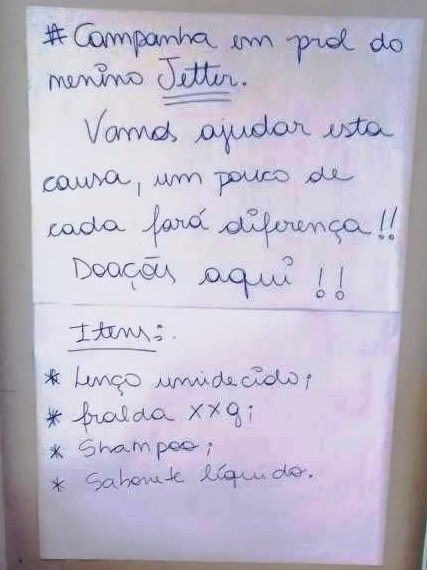 # Campanha em prol do
menino Jetter.
Vamos ajudar esta
causa, um pouco de
cada fará diferença!!
Doaçõs aqui !!
Itens:.
* Lenço umidecido;
* fralda xxg;
* Shampoo;
* Sabonete líquido.